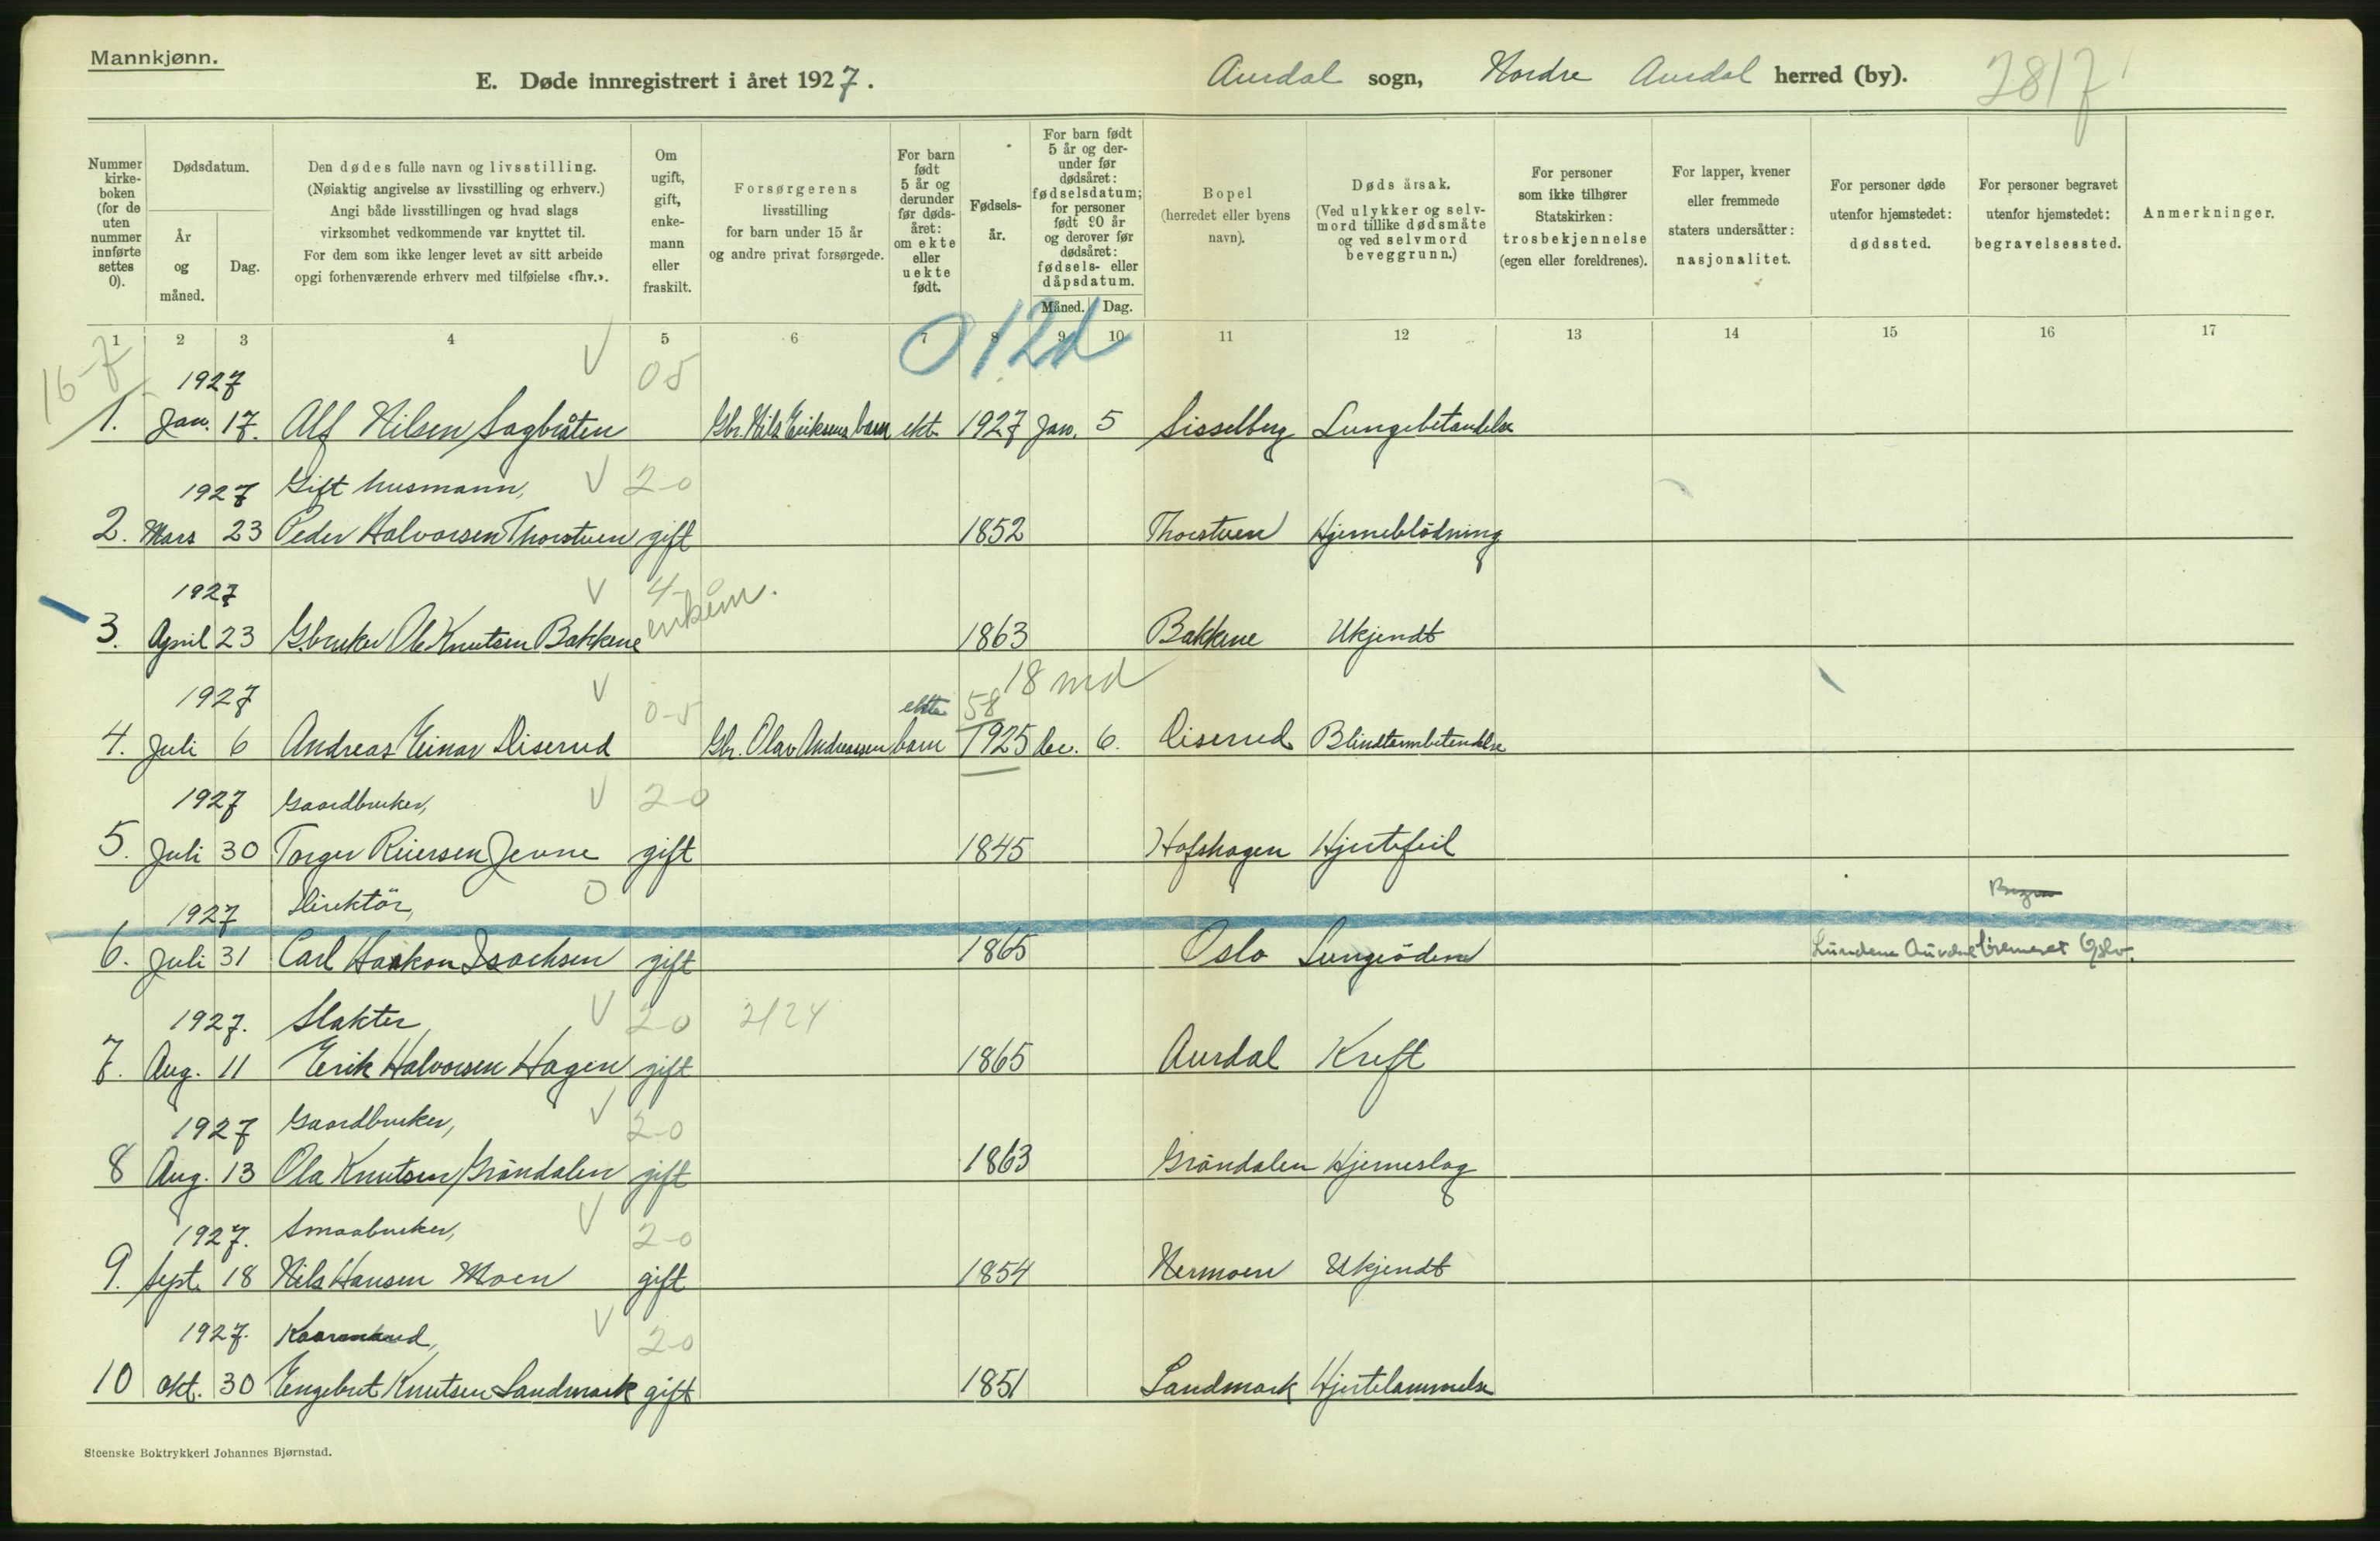 Mannkjønn.
E. Døde innregistrert i året 1927.
Aurdal sogn, Nordre Aurdal herred (by).
2817
Nummer kirke-boken (for de uten nummer innførte settes 0).
Dødsdatum.
År og måned.
Dag.
Den dødes fulle navn og livsstilling.
(Nøiaktig angivelse av livsstilling og erhverv.)
Angi både livsstillingen og hvad slags
virksomhet vedkommende var knyttet til.
For dem som ikke lenger levet av sitt arbeide
opgi forhenværende erhverv med tilføielse «fhv.».
Om ugift, gift, enke-mann eller fraskilt.
Forsørgerens
livsstilling
for barn under 15 år
og andre privat forsørgede.
For barn født 5 år og derunder før døds-året: om ekte eller uekte født.
Fødsels-år.
For barn født 5 år og der-under før dødsåret: fødselsdatum; for personer født 90 år og derover før dødsåret: fødsels- eller dåpsdatum.
Måned. Dag.
Bopel
(herredet eller byens
navn).
Dødsårsak.
(Ved ulykker og selv-
mord tillike dødsmåte
og ved selvmord
beveggrunn.)
For personer
som ikke tilhører
Statskirken:
trosbekjennelse
(egen eller foreldrenes).
For lapper, kvener
eller fremmede
staters undersåtter:
nasjonalitet.
For personer døde
utenfor hjemstedet:
dødssted.
For personer begravet
utenfor hjemstedet:
begravelsessted.
Anmerkninger.
1 2 3 4 5 6 7 8 9 10 11 12 13 14 15 16 17
16-7
0 12d
1927 05
1. Jan. 17. Alf Nilsen Sagbråten Gbr. Nils Eriksens barn ekt. 1927 Jan. 5 Sisselberg Lungebetændelse
1927 Gift husmann, 2-0
2. Mars 23 Peder Halvorsen Thorstuen gift 1852 Thorstuen Hjerneblödning
1927 4-0
enkem.
3. April 23 G.bruker Ole Knutsen Bakkene 1863 Bakkene Ukjendt
18 md
1927 0-5 ekte 58
4. Juli 6 Andreas Einar Diserud Gbr. Olav Andreassen barn 1925 Dec. 6. Diserud Blindtarmbetendelse
1927 Gaardbruker, 2-0
5. Juli 30 Torger Reiersen Jevne gift 1845 Hofshagen Hjertefeil
1927 Direktör, 0
6. Juli 31 Carl Haakon Isachsen gift 1865 Oslo Lungeödem Lundene Aurdal Kremeret Oslo.
1927. Slakter, 20 2/24
7. Aug. 11 Erik Halvorsen Hagen gift 1865 Aurdal Kreft
1927 Gaardbruker, 2-0
8 Aug. 13 Ola Knutsen Gröndalen gift 1863 Gröndalen Hjerneslag
1927. Smaabruker, 2-0
9. Sept. 18 Nils Hansen Moen gift 1854 Nermoen Ukjendt
1927. 2-0
10 Okt. 30 Engebret Knutsen Landmark gift 1851 Landmark Hjertelammelse
Steenske Boktrykkeri Johannes Bjørnstad.